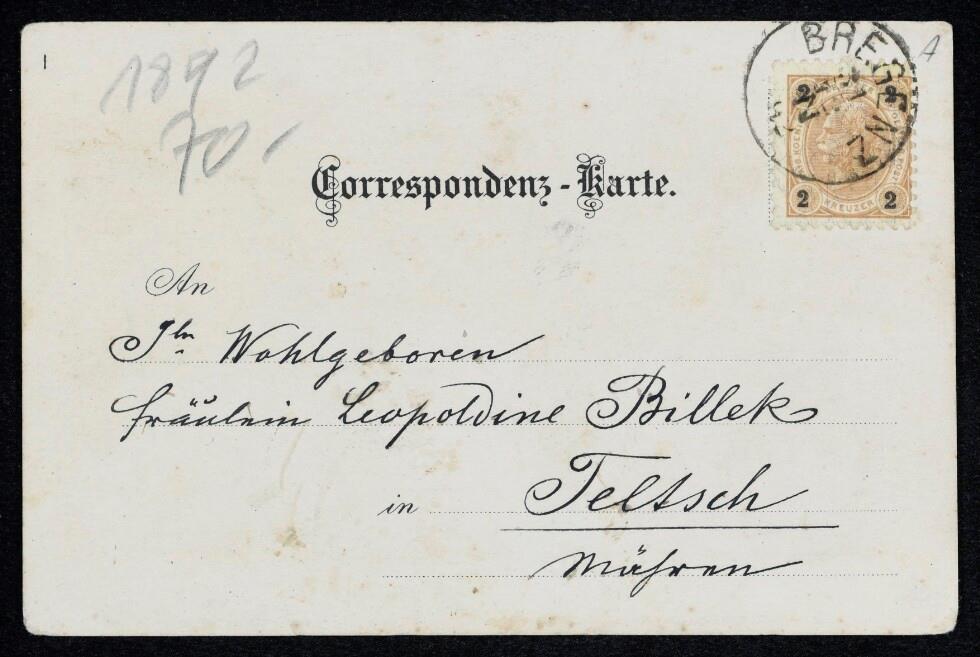 1892
70-
BREGENZ
2 2
2 KREUZER 2
A
Correspondenz-Karte.
An
Ihr Wohlgeboren
Fräulein Leopoldine Billek
in Teltsch
Mähren